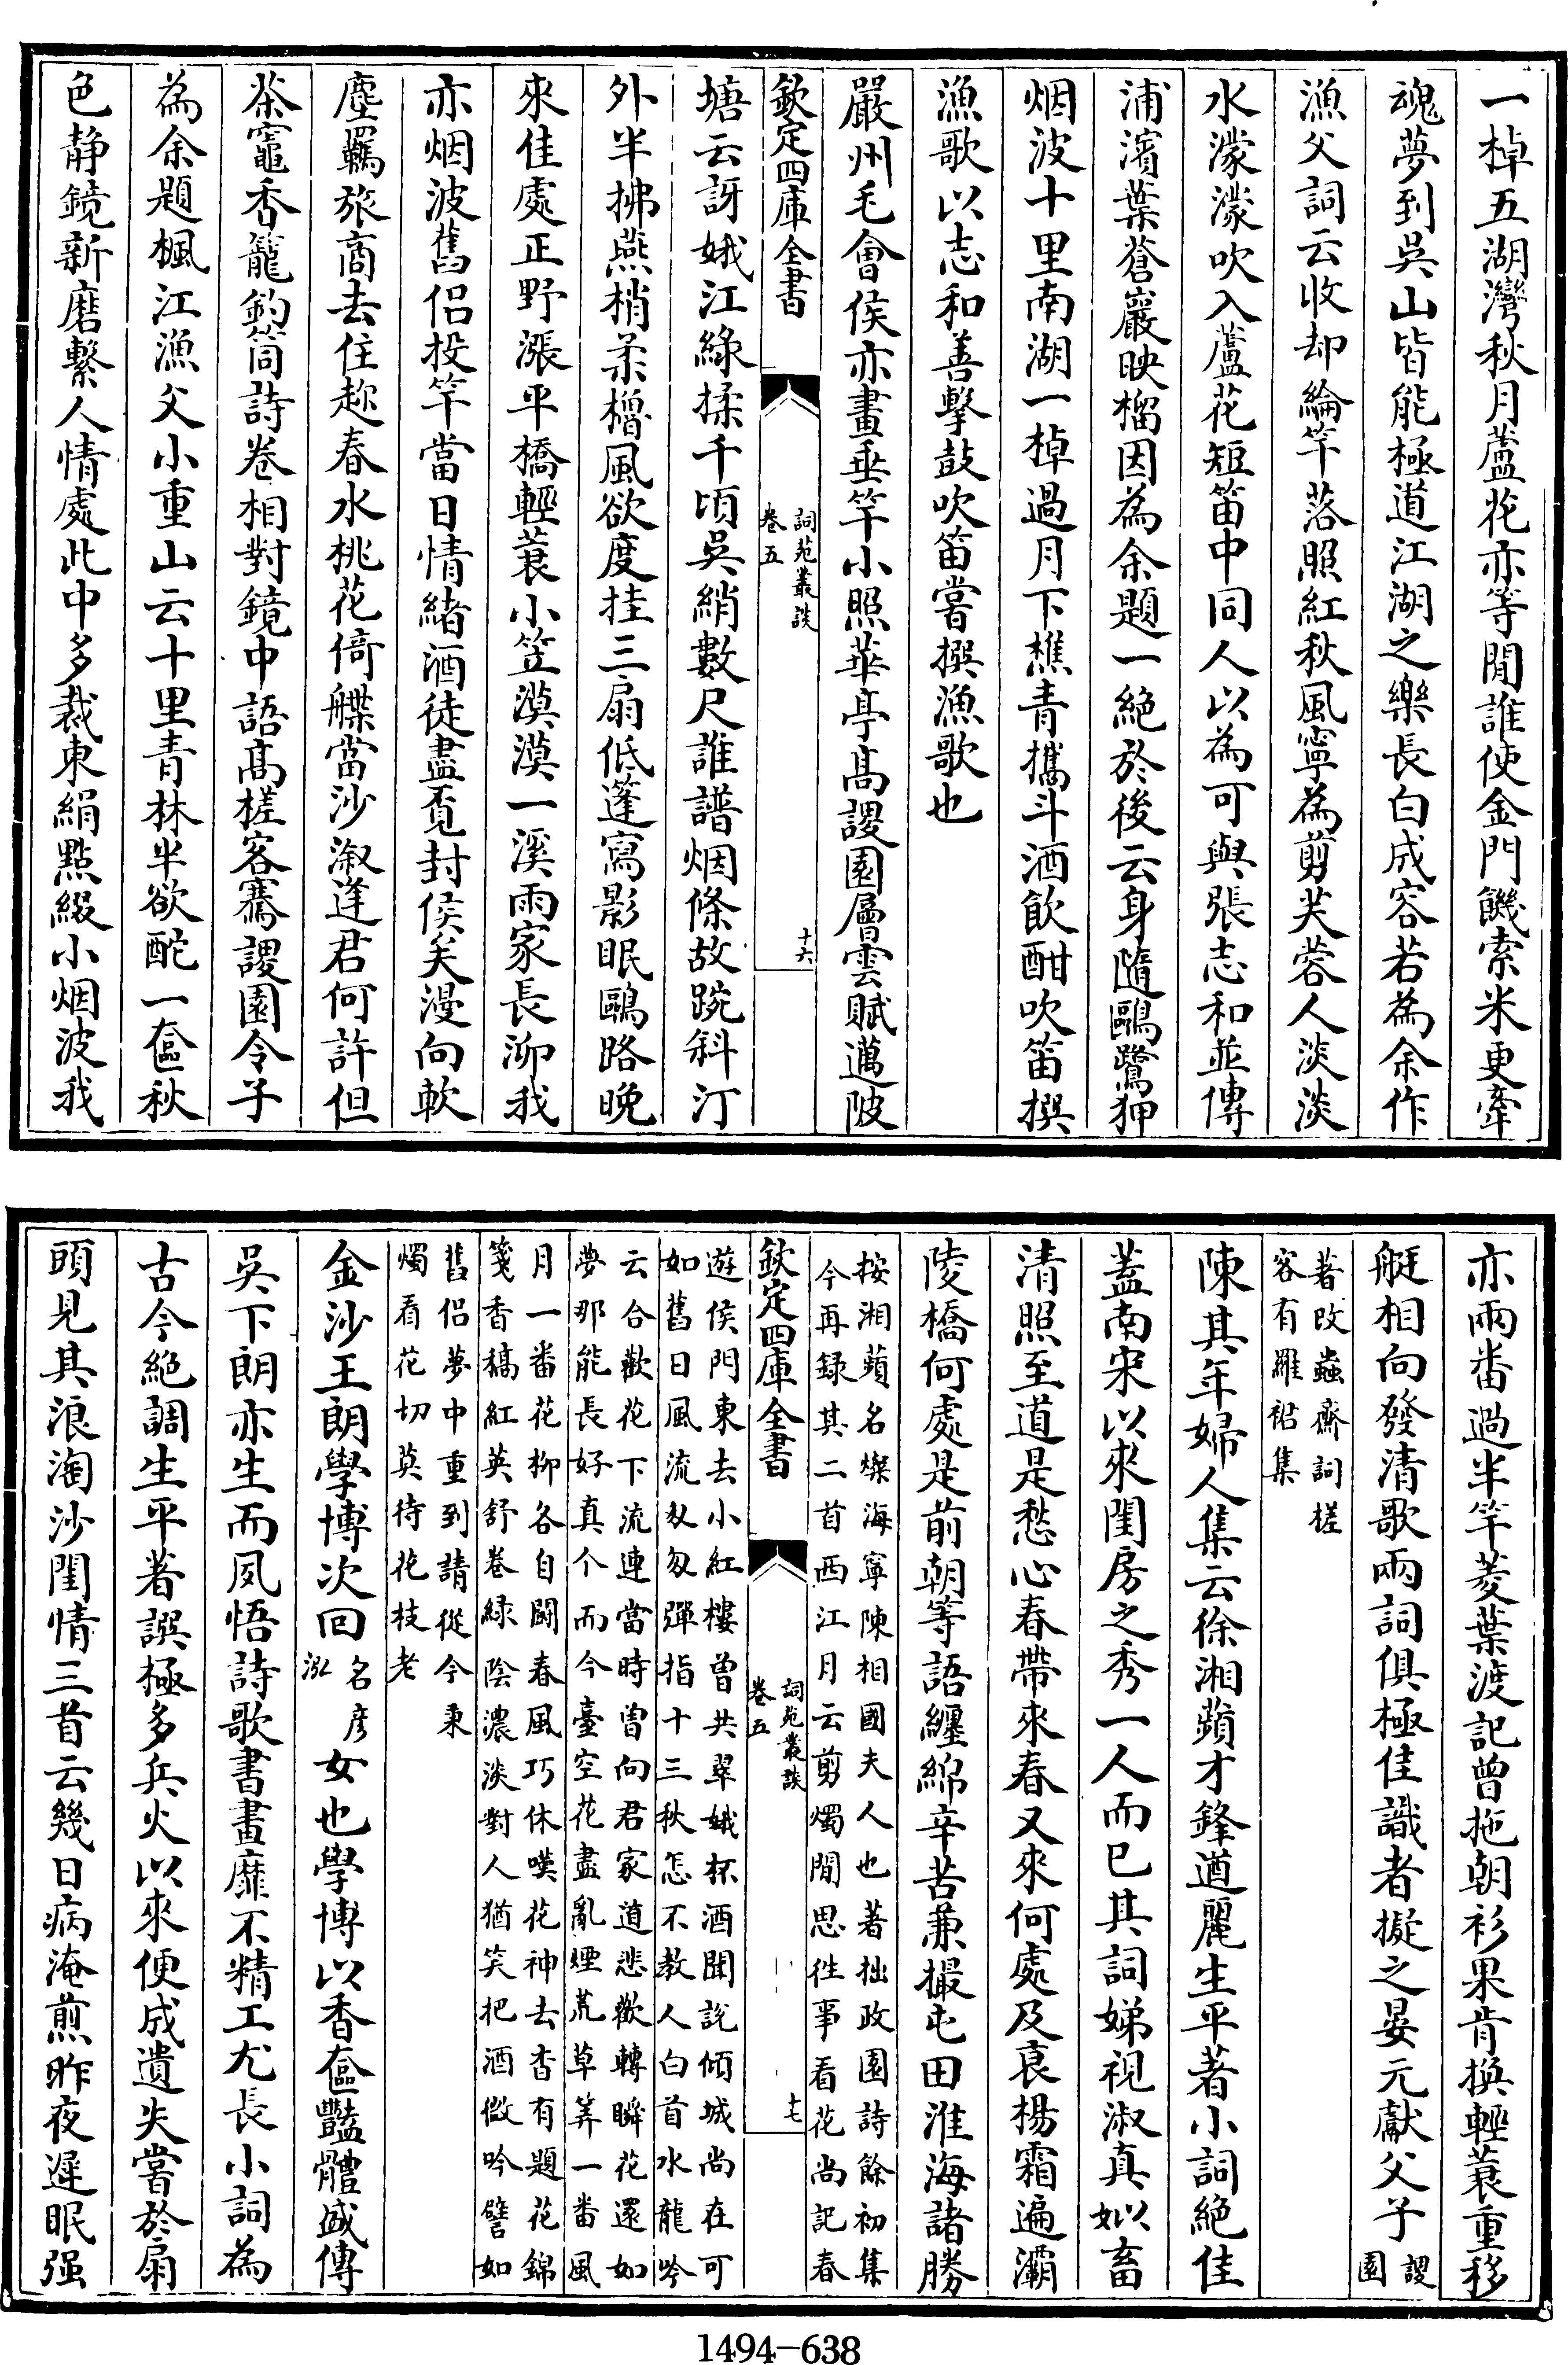 一棹五湖灣秋月蘆花亦等閒誰使金門饑索米更牽
魂夢到吳山皆能極道江湖之樂長白成容若為余作
漁父詞云收却綸竿落照紅秋風寧為剪芙蓉人淡淡
水濛濛吹入蘆花短笛中同人以為可與張志和並傳
浦濱葉蒼巖映榴因為余題一絶於後云身隨鷗鷺狎
烟波十里南湖一棹過月下樵青攜斗酒飲酣吹笛撰
漁歌以志和善擊鼓吹笛嘗撰漁歌也
嚴州毛會侯亦畫垂竿小照華亭高謖園層雲賦邁陂
欽定四庫全書
詞苑叢談
卷五
十六
塘云訝娥江綠揉千頃吳綃數尺誰譜烟條故踠科汀
外半拂燕梢柔櫓風欲度挂三扇低篷寫影眠鷗路晚
來佳處正野漲平橋輕蓑小笠漠漠一溪雨家長泖我
亦烟波舊侶投竿當日情緒酒徒盡覔封侯矣漫向軟
塵羈旅商去住趂春水桃花倚艓當沙溆逢君何許但
茶竈香籠釣筒詩卷相對鏡中語髙槎客騫謖園令子
為余題楓江漁父小重山云十里青林半欲酡一奩秋
色静鏡新磨繫人情處此中多裁東絹點綴小烟波我
亦兩番過半竿菱葉渡記曾拖朝衫果肯換輕蓑重移
艇相向發清歌兩詞俱極佳識者擬之晏元獻父子謖園
著改蟲齋詞槎
客有羅裙集
陳其年婦人集云徐湘蘋才鋒遒麗生平著小詞絶佳
蓋南宋以來閨房之秀一人而已其詞娣視淑真姒畜
清照至道是愁心春帶來春又來何處及衰楊霜遍灞
陵橋何處是前朝等語纏綿辛苦兼撮屯田淮海諸勝
按湘蘋名燦海寧陳相國夫人也著拙政園詩餘初集
今再録其二首西江月云剪燭閒思徃事看花尚記春
欽定四庫全書
詞苑叢談
卷五
十七
遊侯門東去小紅樓曾共翠娥杯酒聞說傾城尚在可
如舊日風流匆匆彈指十三秋怎不教人白首水龍吟
云合歡花下流連當時曾向君家道悲歡轉瞬花還如
夢那能長好真个而今臺空花盡亂煙荒草筭一番風
月一番花柳各自鬭春風巧休嘆花神去杳有題花錦
箋香稿紅英舒卷綠陰濃淡對人猶笑把酒微吟譬如
舊侶夢中重到請從今秉
燭看花切莫待花枝老
金沙王朗學博次回名彦泓女也學博以香奩豔體盛傳
吳下朗亦生而夙悟詩歌書畫靡不精工尤長小詞為
古今絶調生平著譔極多兵火以來便成遺失嘗於扇
頭見其浪淘沙閨情三首云幾日病淹煎昨夜遲眠强
1494-638